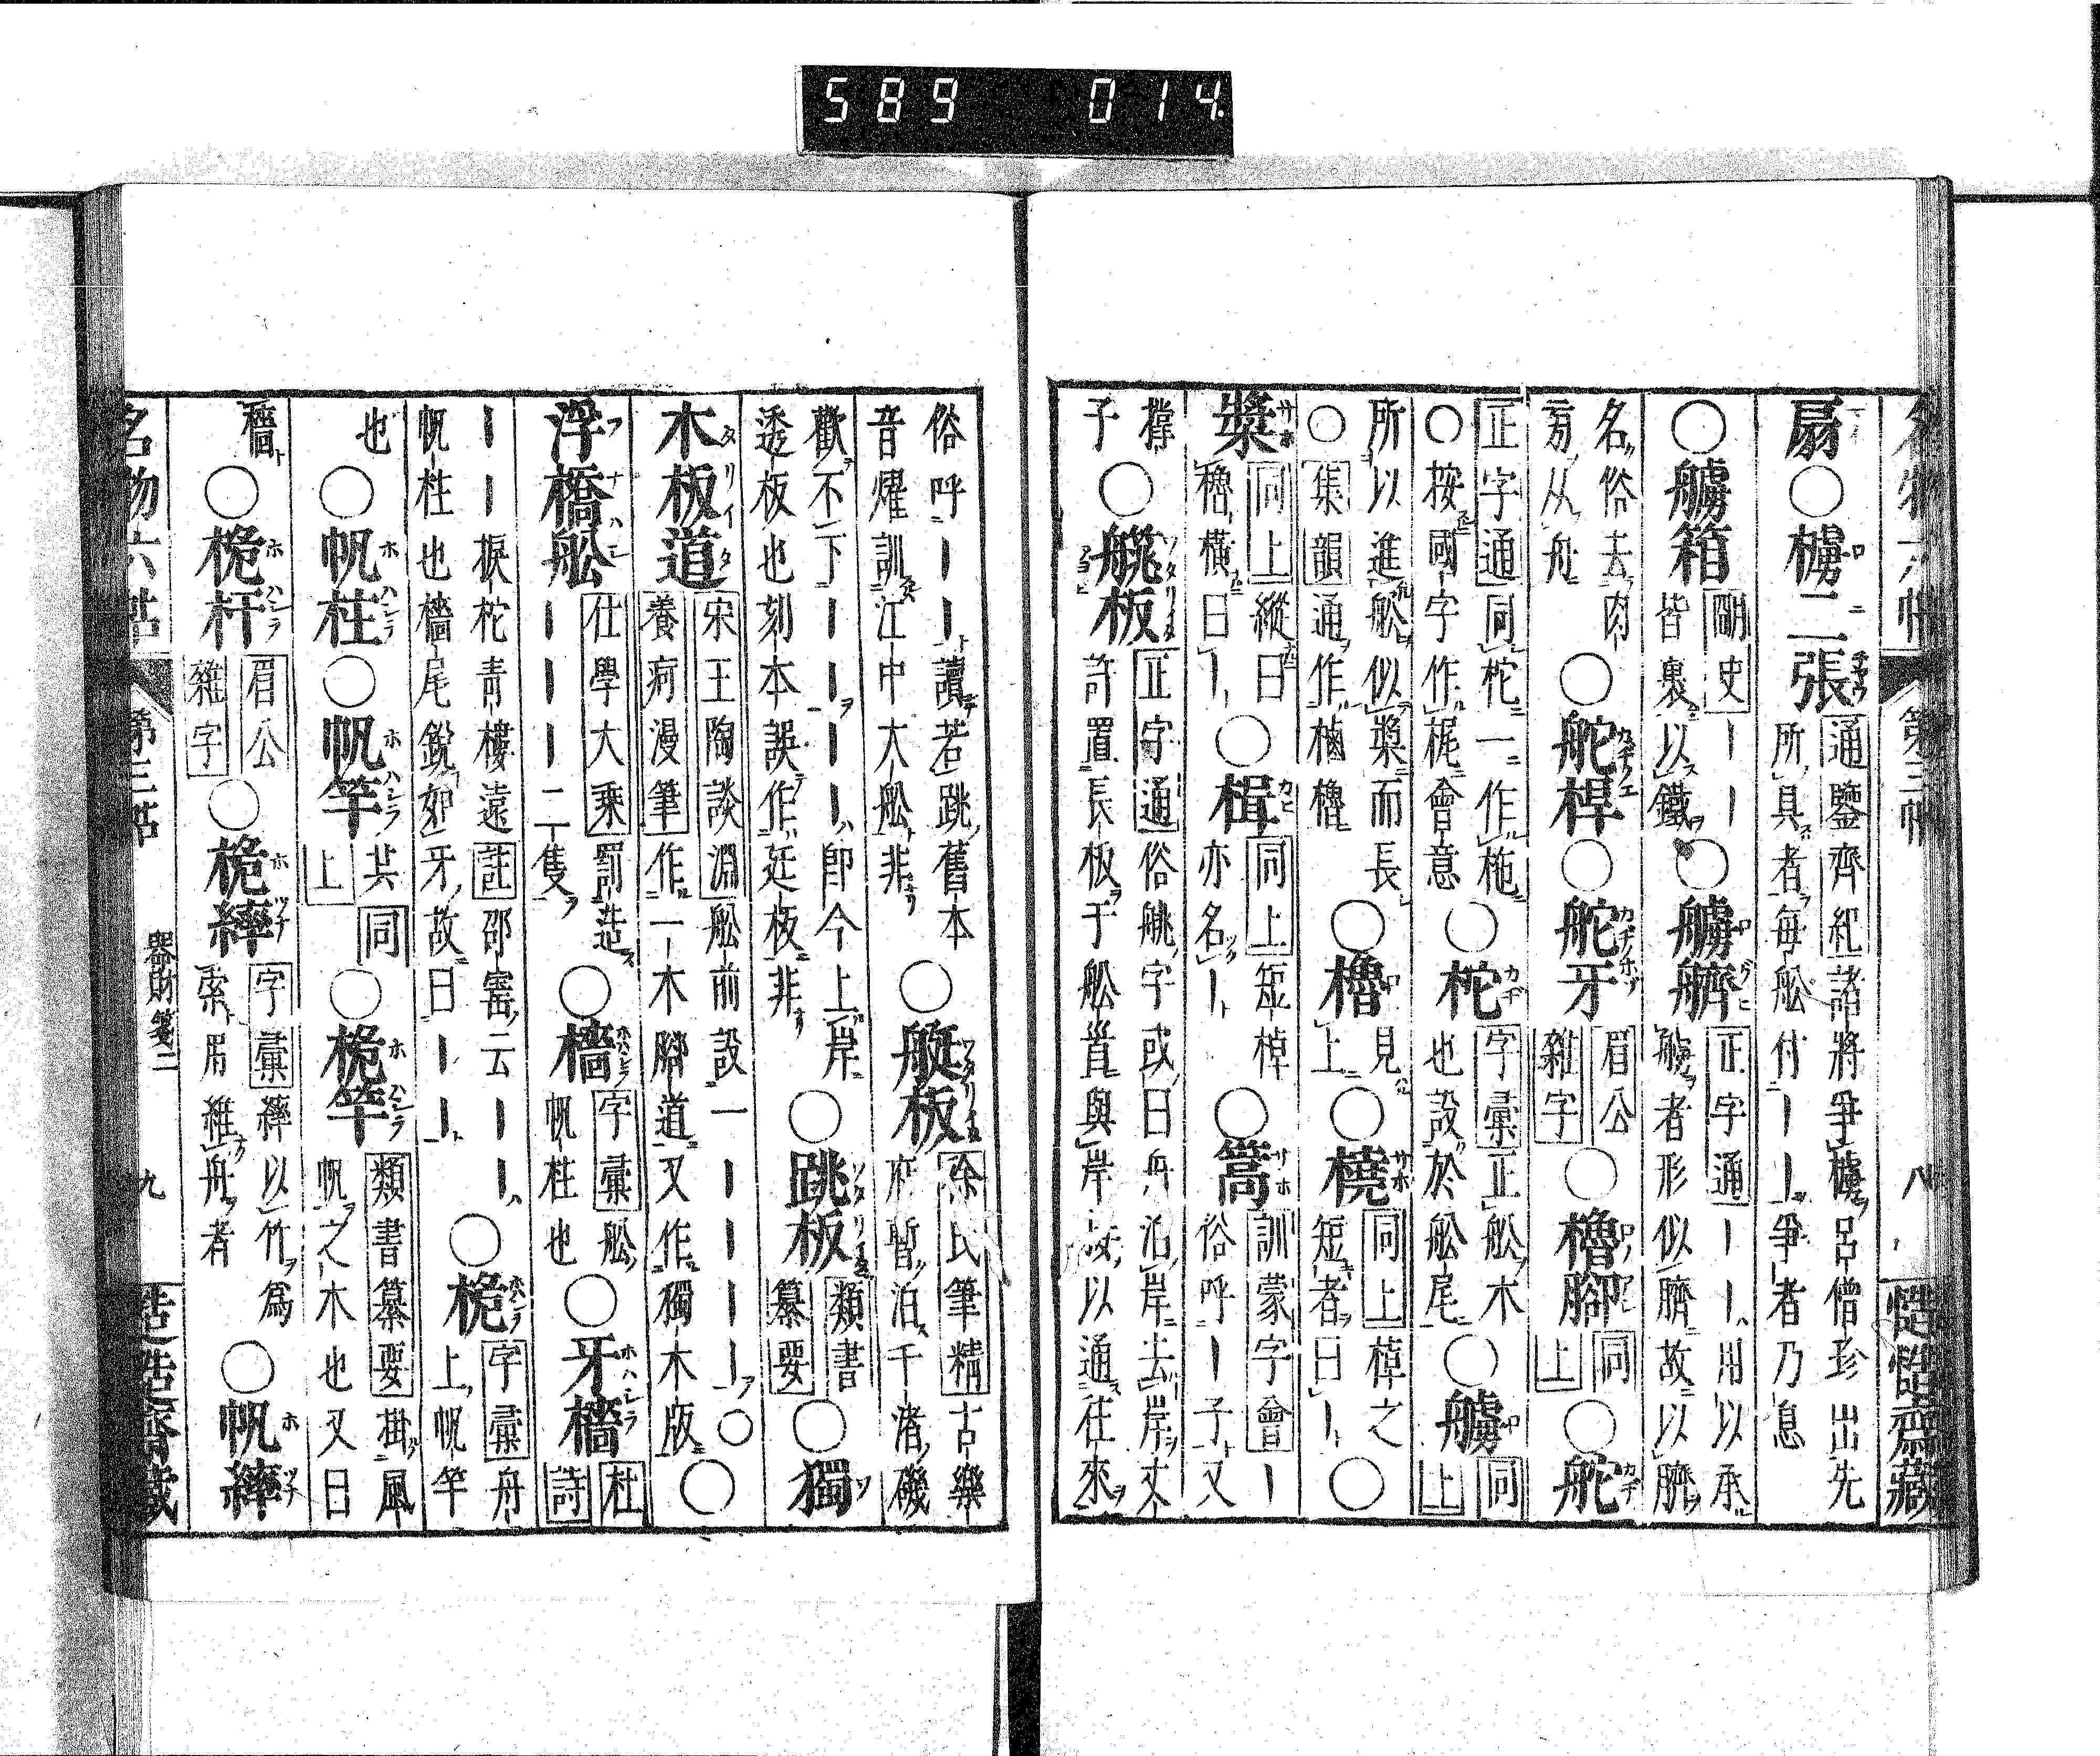 589 014
名物六帖 第三帖 八 𢡟𢡟齋藏
扇○櫓二張 通鑒齊紀諸將爭櫓呂僧珍出先
所具者每舩付||爭者乃息
○艣箱 蜩史||
皆裹以鐵○艣臍 正字通||用以承
艣者形似臍故以臍
名俗去肉
旁从舟○舵桿○舵牙 眉公
雜字○櫓腳 同
上○舵
正字通同柁一作柂
○按國字作梶會意○柁 字彙正舩木
也設於舩尾○艣 同
上
所以進舩似槳而長
○集韻通作樐櫓○櫓 見
上○橈 同上棹之
短者曰|○
槳 同上縱曰
櫓橫曰|○楫 同上短棹
亦名|○篙 訓蒙字會|
俗呼|子又
撐
子○艞板 正字通俗艞字或曰舟泊岸去岸丈
許置長板于舩首與岸接以通往來
俗呼||讀若跳舊本
音燿訓江中大舩非○艇板 徐氏筆精古樂
府暫泊千渚磯
歡不下||||卽今上岸
透板也刻本誤作廷板非○跳板 類書
纂要○獨
木板道 宋王陶談淵舩前設一||||○
養疴漫筆作一木腳道又作獨木版○
浮橋舩 仕學大乘罰造
||||二隻○檣 字彙舩
帆柱也○牙檣 杜
詩
||捩柁青樓遠 註邵寳云||
帆柱也檣尾鋭如牙故曰||○桅 字彙舟
上帆竿
也○帆柱○帆竿 共同
上○桅竿 類書纂要掛風
帆之木也又曰
檣○桅杆 眉公
雜字○桅繂 字彙繂以竹爲
索用維舟者○帆繂
名物六帖 第三帖 器財箋二 九